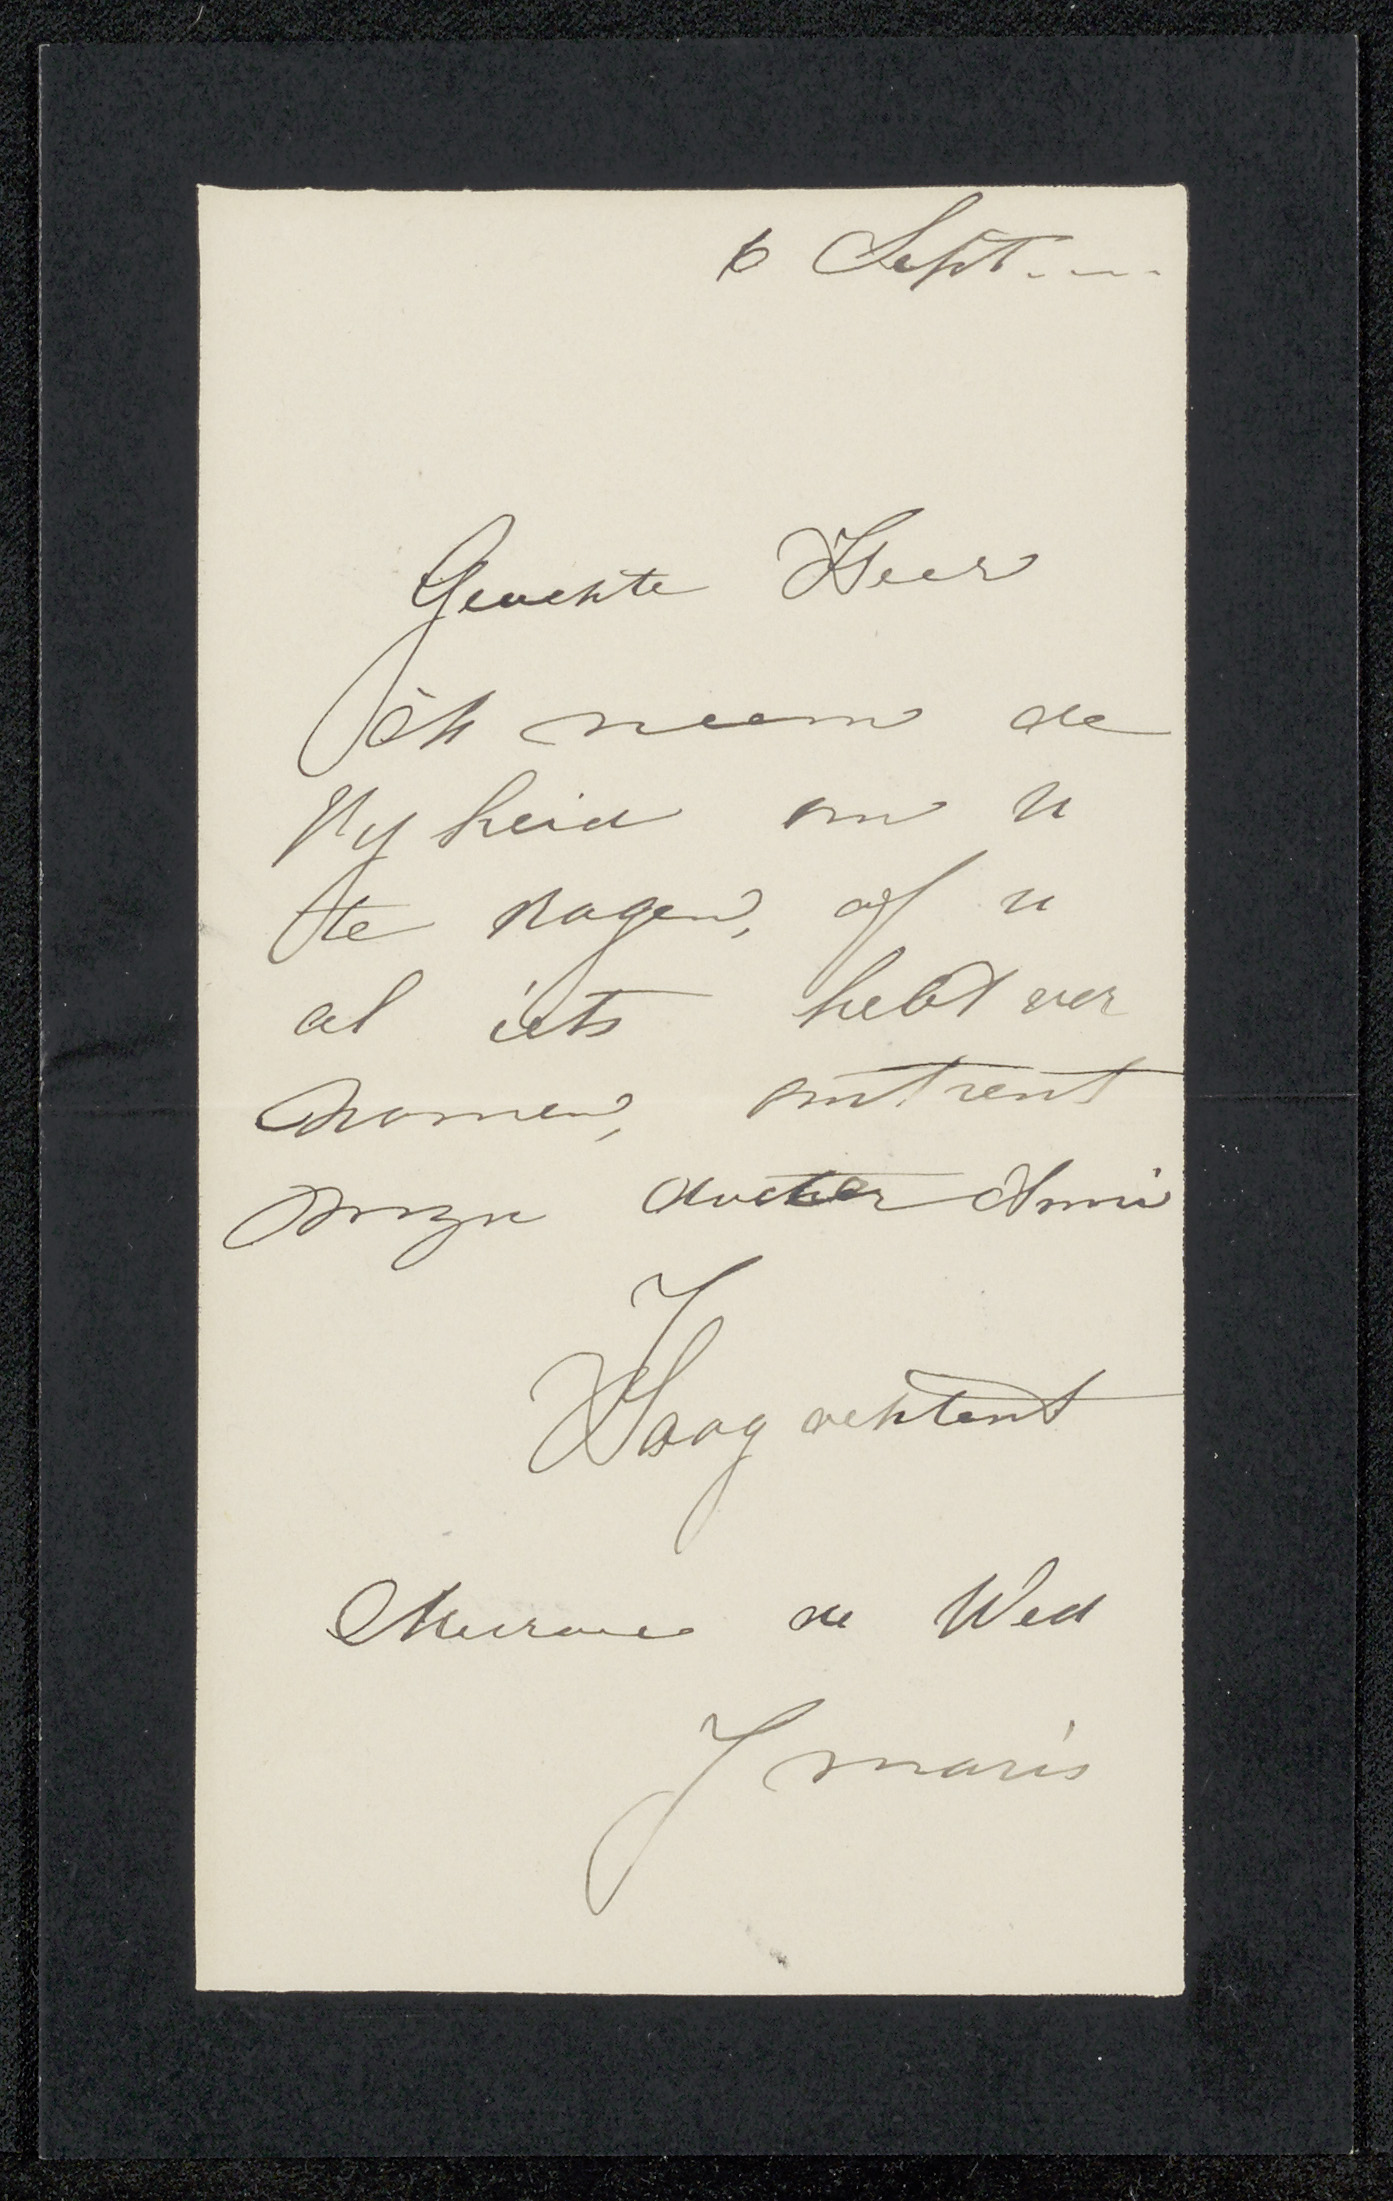 6 Sept.
Geachte Heer
ik neem de
vryheid om u
te vragen, of u
al iets hebt ver
nomen, omtrent
myn dochter Anni
Hoog achtent
Mevrouw de Wed
J Maris